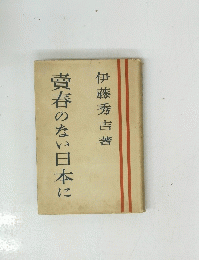 伊藤秀吉著
賣春のない日本に